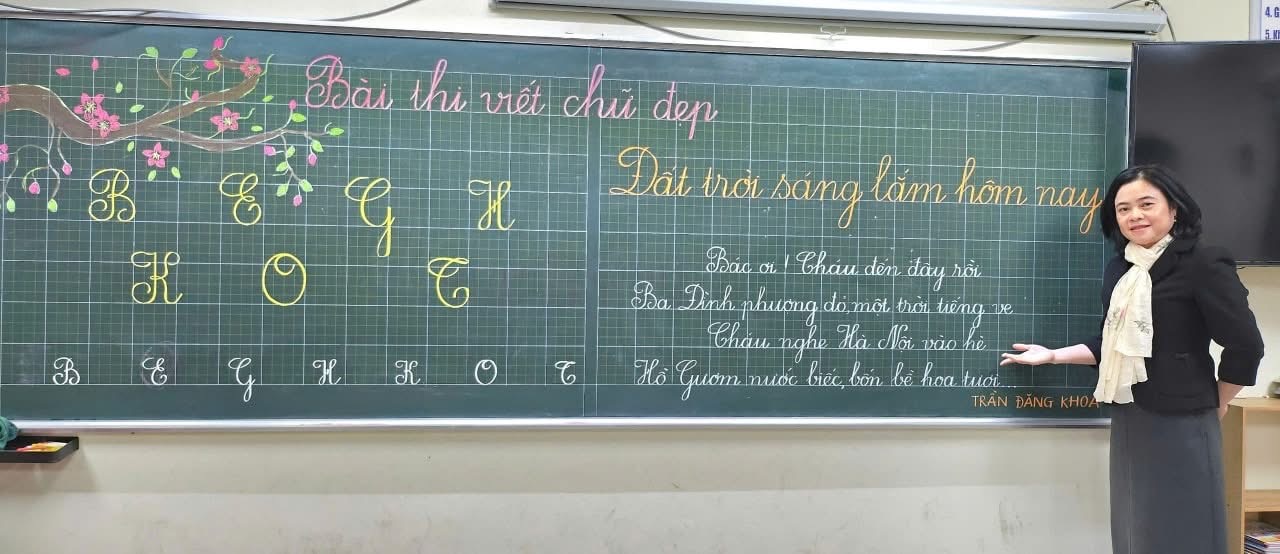 Bài thi viết chữ đẹp
B E G H
K O T
B E G H K O T
Đất trời sáng lắm hôm nay
Bác ơi! Cháu đến đây rồi
Ba Đình phượng đỏ, một trời tiếng ve
Cháu nghe Hà Nội vào hè
Hồ Gươm nước biếc, bốn bề hoa tươi...
TRẦN ĐĂNG KHOA
4. G
5. K